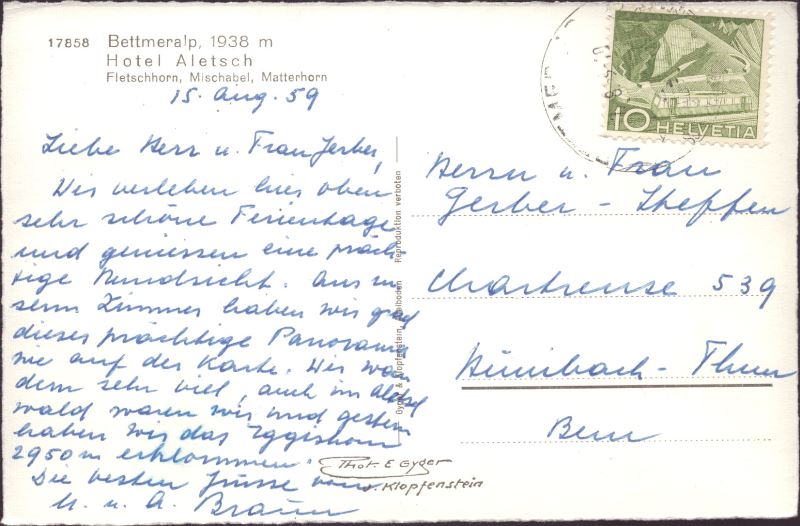 17858 Bettmeralp, 1938 m
Hotel Aletsch
Fletschhorn, Mischabel, Matterhorn
15. Aug. 59
Liebe Herr u. Frau Gerber,
Wir verleben hier oben
sehr schöne Ferientage
und geniessen eine präch-
tige Rundsicht. Aus un
serm Zimmer haben wir grad
dieses prächtige Panorama
wie auf der Karte. Wir wan
dern sehr viel, auch im Aletsch
wald waren wir und gestern
haben wir das Eggishorn
2950 m erklommen.
Die besten Grüsse von
M. u. A. Braun
Phot. E Gyger
A. Klopfenstein
Gyger & Klopfenstein, Adelboden Reproduktion verboten
10 HELVETIA
Herrn u. Frau
Gerber - Steffen
Chartreuse 539
Hünibach - Thun
Bern